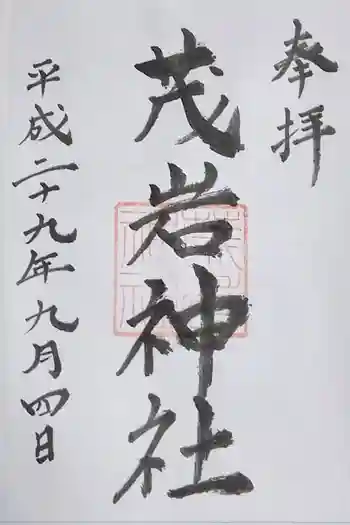 奉拝
茂岩神社
平成二十九年九月四日